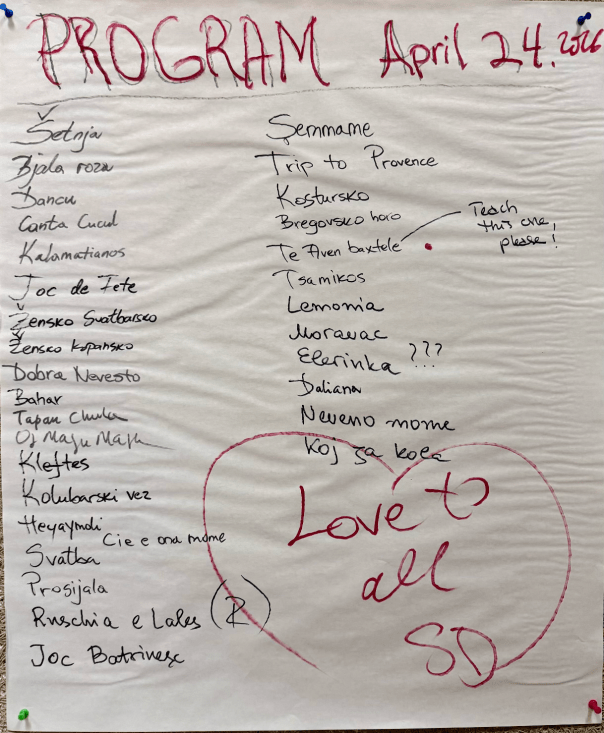 PROGRAM April 24. 2026
Šetnja
Bjala roza
Dancu
Canta Cucul
Kalamatianos
Joc de Fete
Žensko Svatbarsko
Žensko Kopansko
Dobra Nevesto
Bahar
Tapan Chula
Oj Maju Maju
Kleftes
Kolubarski vez
Heyaymoli
Cie e ona mome
Svatba
Prosijala
Ruschia e Lales (R)
Joc Batrinesc
Şemmame
Trip to Provence
Kostursko
Bregovsko horo
Te Aven baxtele
Teach
this one,
please!
Tsamikos
Lemonia
Moravac
Elerinka ???
Daliana
Neveno mome
Koj ša kola
Love to
all
SD